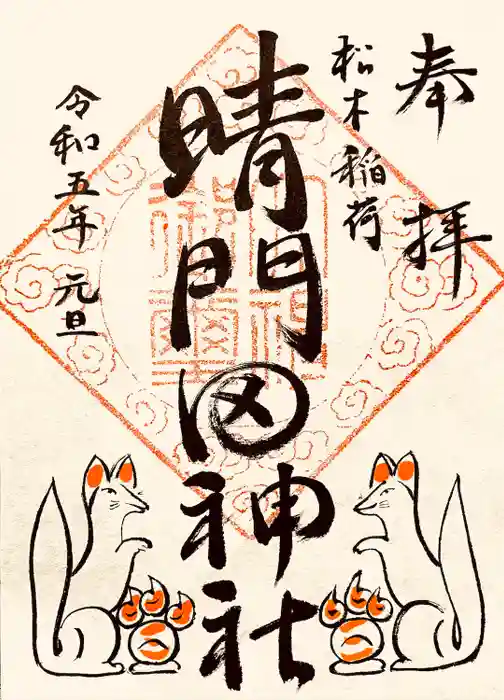 奉拝
松木稲荷
晴門田神社
令和五年 元旦